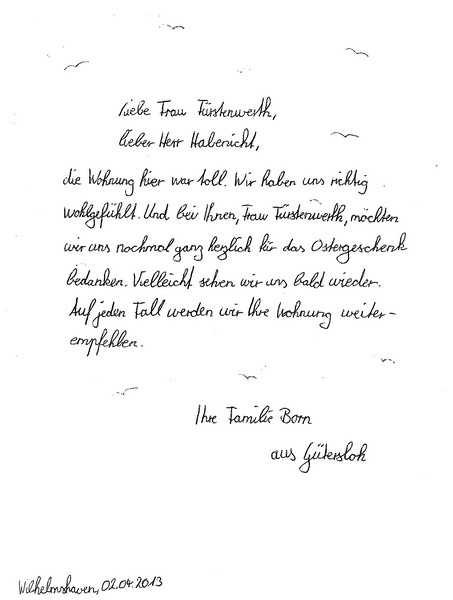 Liebe Frau Fürstenwerth,
lieber Herr Habenicht,
die Wohnung hier war toll. Wir haben uns richtig
wohlgefühlt. Und bei Ihnen, Frau Fürstenwerth, möchten
wir uns nochmal ganz herzlich für das Ostergeschenk
bedanken. Vielleicht sehen wir uns bald wieder.
Auf jeden Fall werden wir Ihre Wohnung weiter-
empfehlen.
Ihre Familie Born
aus Gütersloh
Wilhelmshaven, 02.04.2013